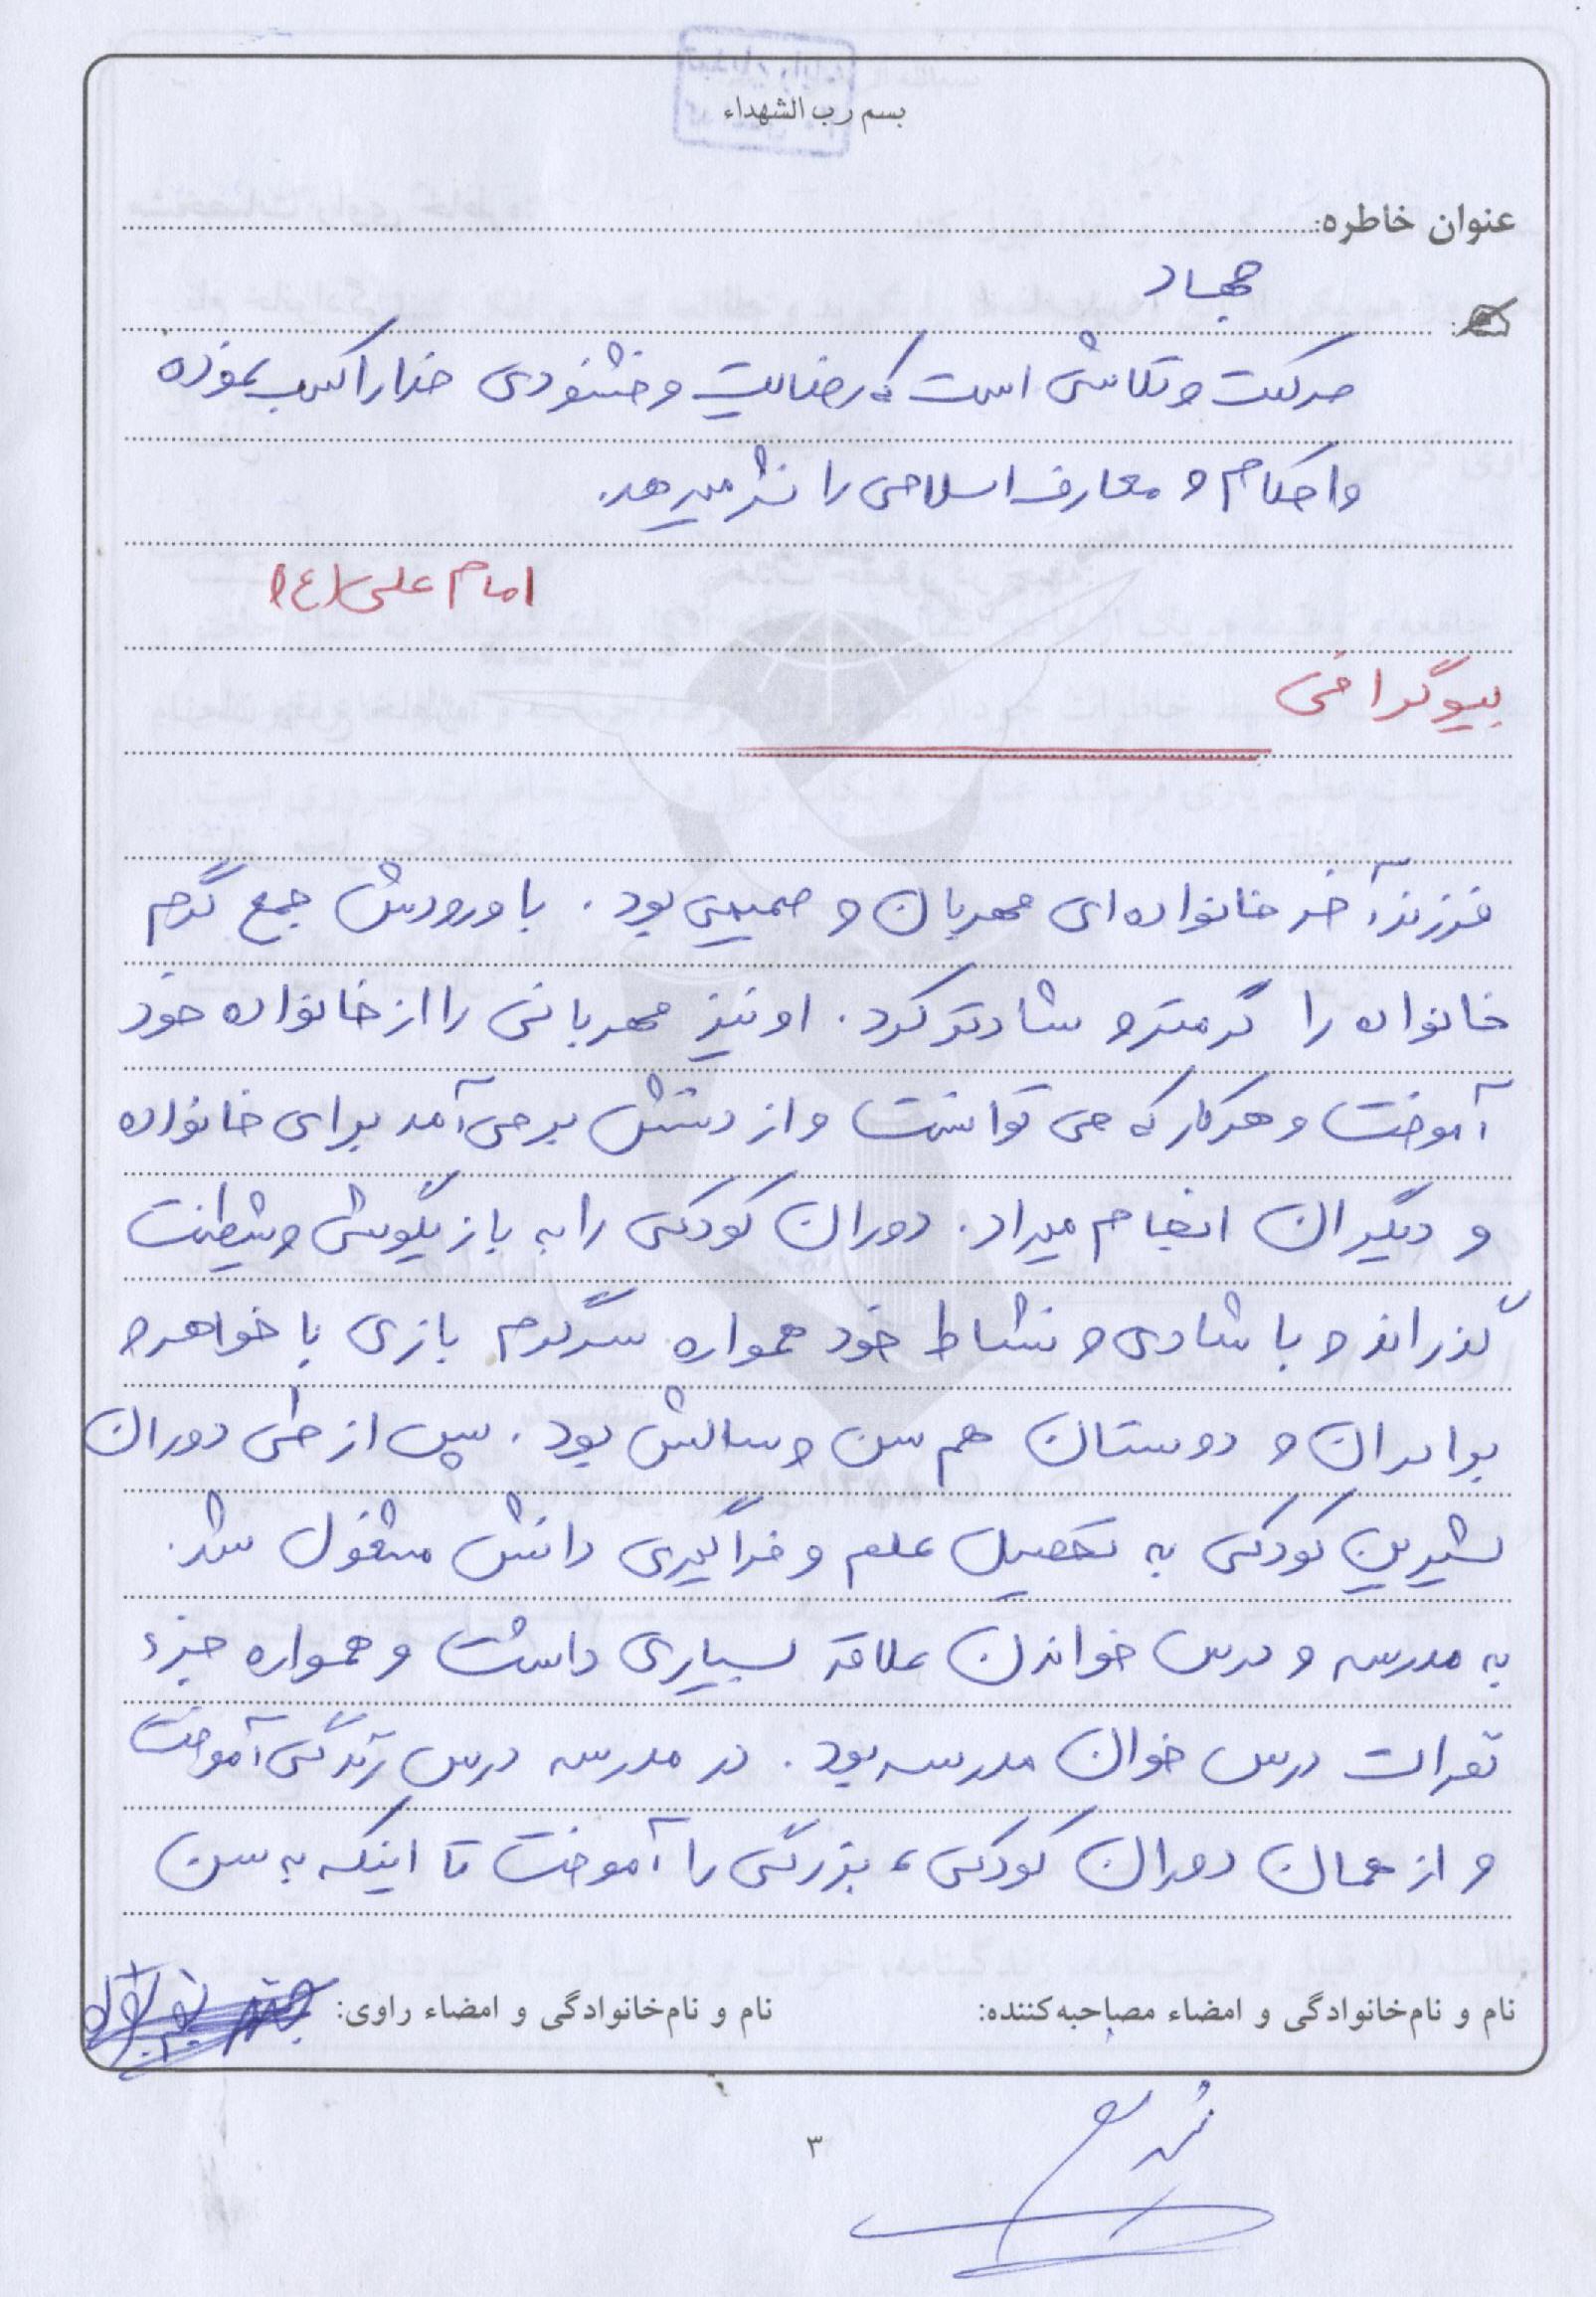 بسم رب الشهداء
عنوان خاطره:
جهاد
حرکت و تلاشی است که رضایت و خشنودی خدا را کسب نموده
و احکام و معارف اسلامی را نشر میدهد.
امام علی (ع)
بیوگرافی
فرزند آخر خانواده ای مهربان و صمیمی بود. با ورودش جمع گرم
خانواده را گرمتر و شادتر کرد. او نیز مهربانی را از خانواده خود
آموخت و هر کار که می توانست و از دستش بر می آمد برای خانواده
و دیگران انجام میداد. دوران کودکی را به بازیگوشی و شیطنت
گذراند و با شادی و نشاط خود همواره سرگرم بازی با خواهر و
برادران و دوستان هم سن و سالش بود. پس از طی دوران
شیرین کودکی به تحصیل علم و فراگیری دانش مشغول شد.
به مدرسه و درس خواندن علاقه بسیاری داشت و همواره جزء
نفرات درس خوان مدرسه بود. در مدرسه درس زندگی آموخت
و از همان دوران کودکی، بزرگی را آموخت تا اینکه به سن
نام و نام‌خانوادگی و امضاء مصاحبه‌کننده:
نام و نام‌خانوادگی و امضاء راوی:
۳